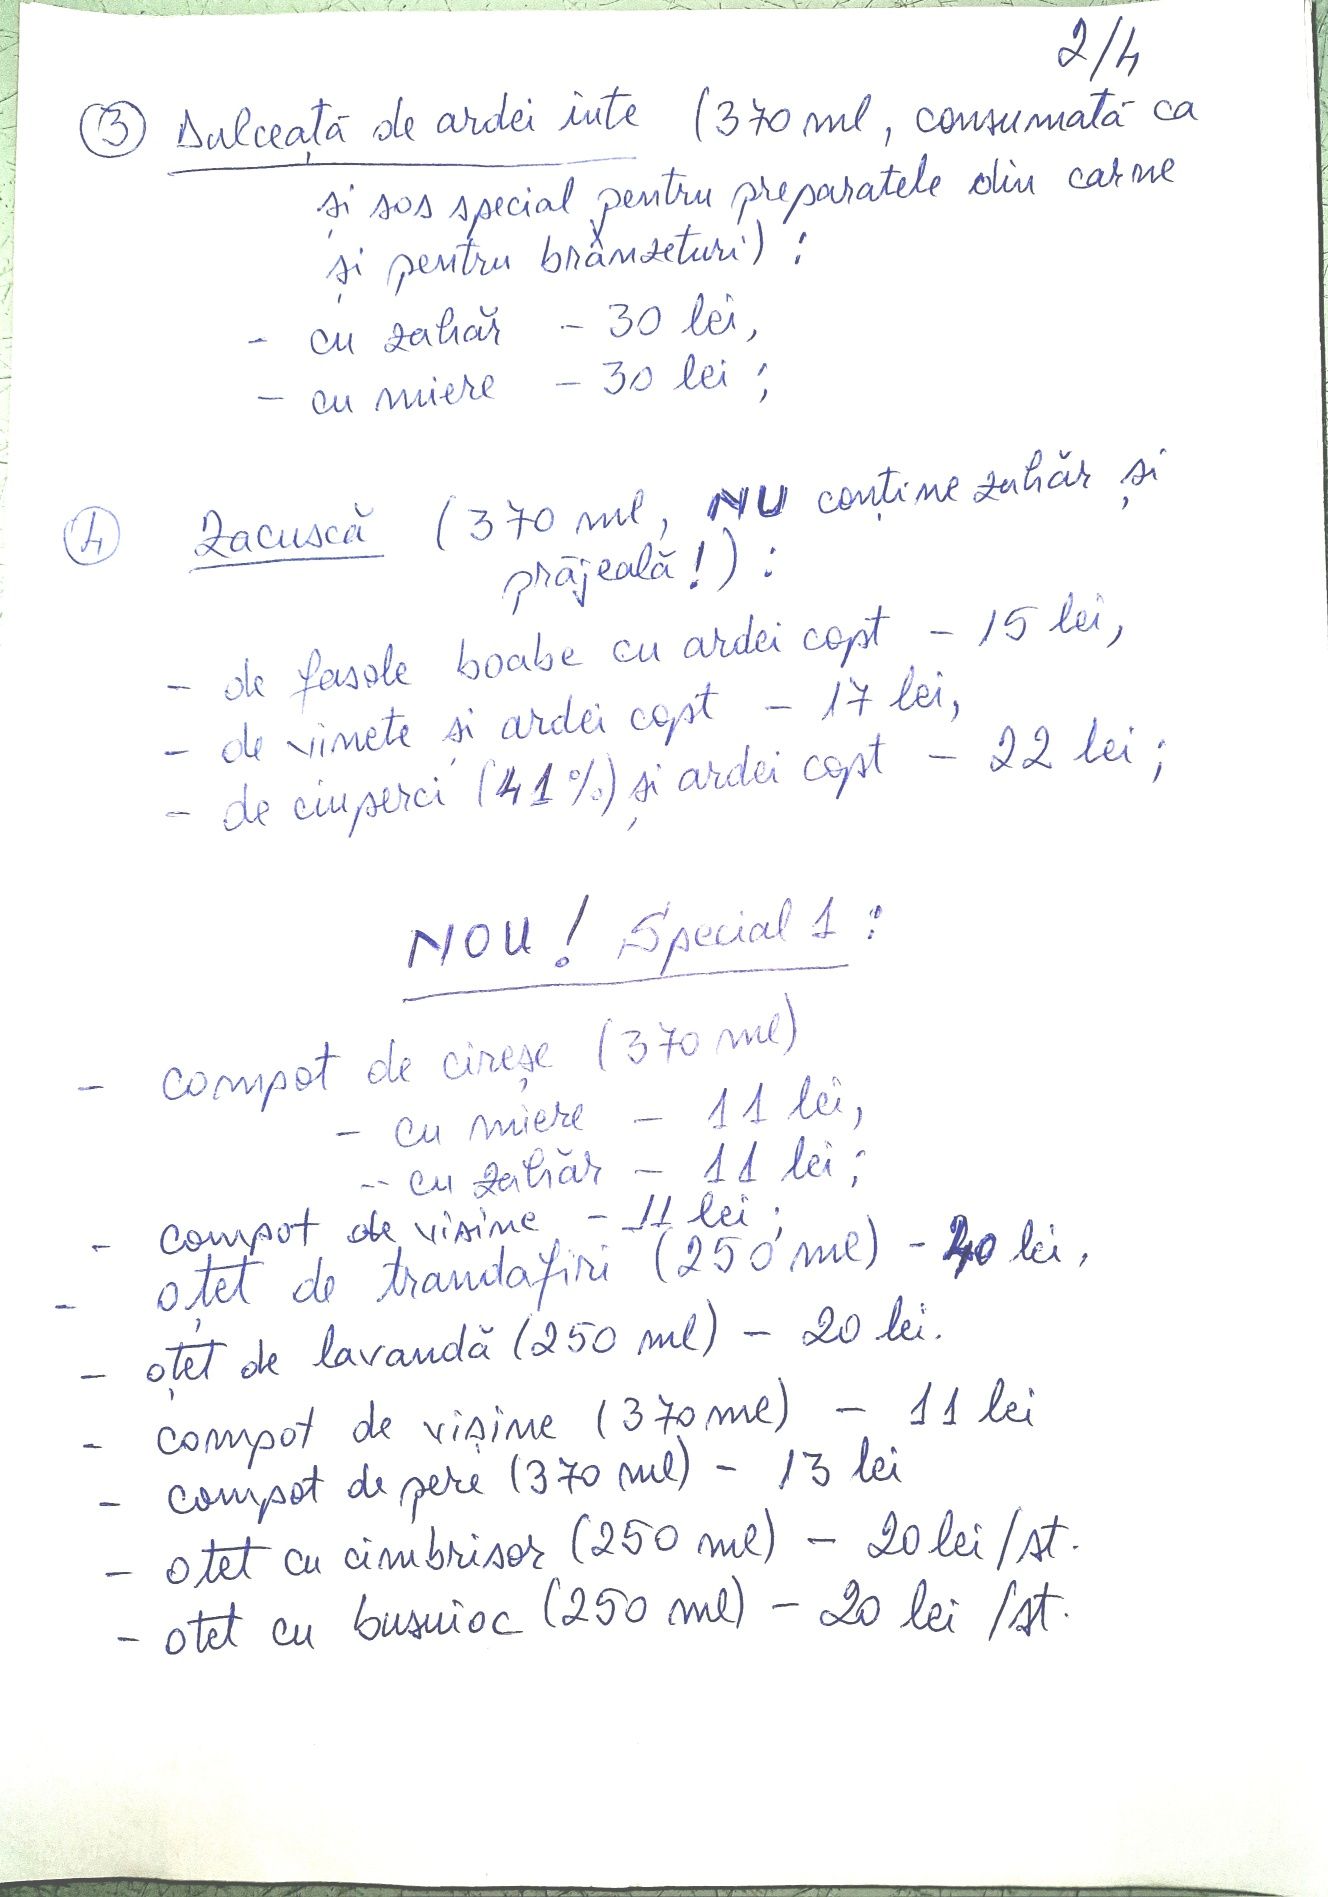 2/4
3 Dulceață de ardei iute (370 ml, consumată ca
și sos special pentru preparatele din carne
și pentru brânzeturi) :
- cu zahăr - 30 lei,
- cu miere - 30 lei ;
4 Zacuscă (370 ml, NU conține zahăr și
prăjeală!) :
- de fasole boabe cu ardei copt - 15 lei,
- de vinete și ardei copt - 17 lei,
- de ciuperci (41%) și ardei copt - 22 lei ;
NOU! Special 1 :
- compot de cireșe (370 ml)
- cu miere - 11 lei,
- cu zahăr - 11 lei ;
- compot de visine - 11 lei ;
- oțet de trandafiri (250 ml) - lei,
- oțet de lavandă (250 ml) - 20 lei.
- compot de vișine (370 ml) - 11 lei
- compot de pere (370 ml) - 13 lei
- otet cu cimbrisor (250 ml) - 20 lei/st.
- otet cu busuioc (250 ml) - 20 lei /st.